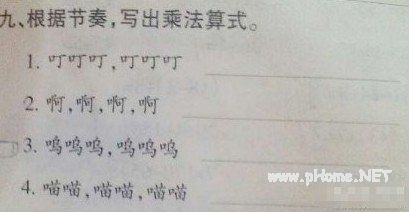 九、根据节奏,写出乘法算式。
1. 叮叮叮,叮叮叮
2. 啊,啊,啊,啊
3. 呜呜呜,呜呜呜
4. 喵喵,喵喵,喵喵
www.pHome.NET